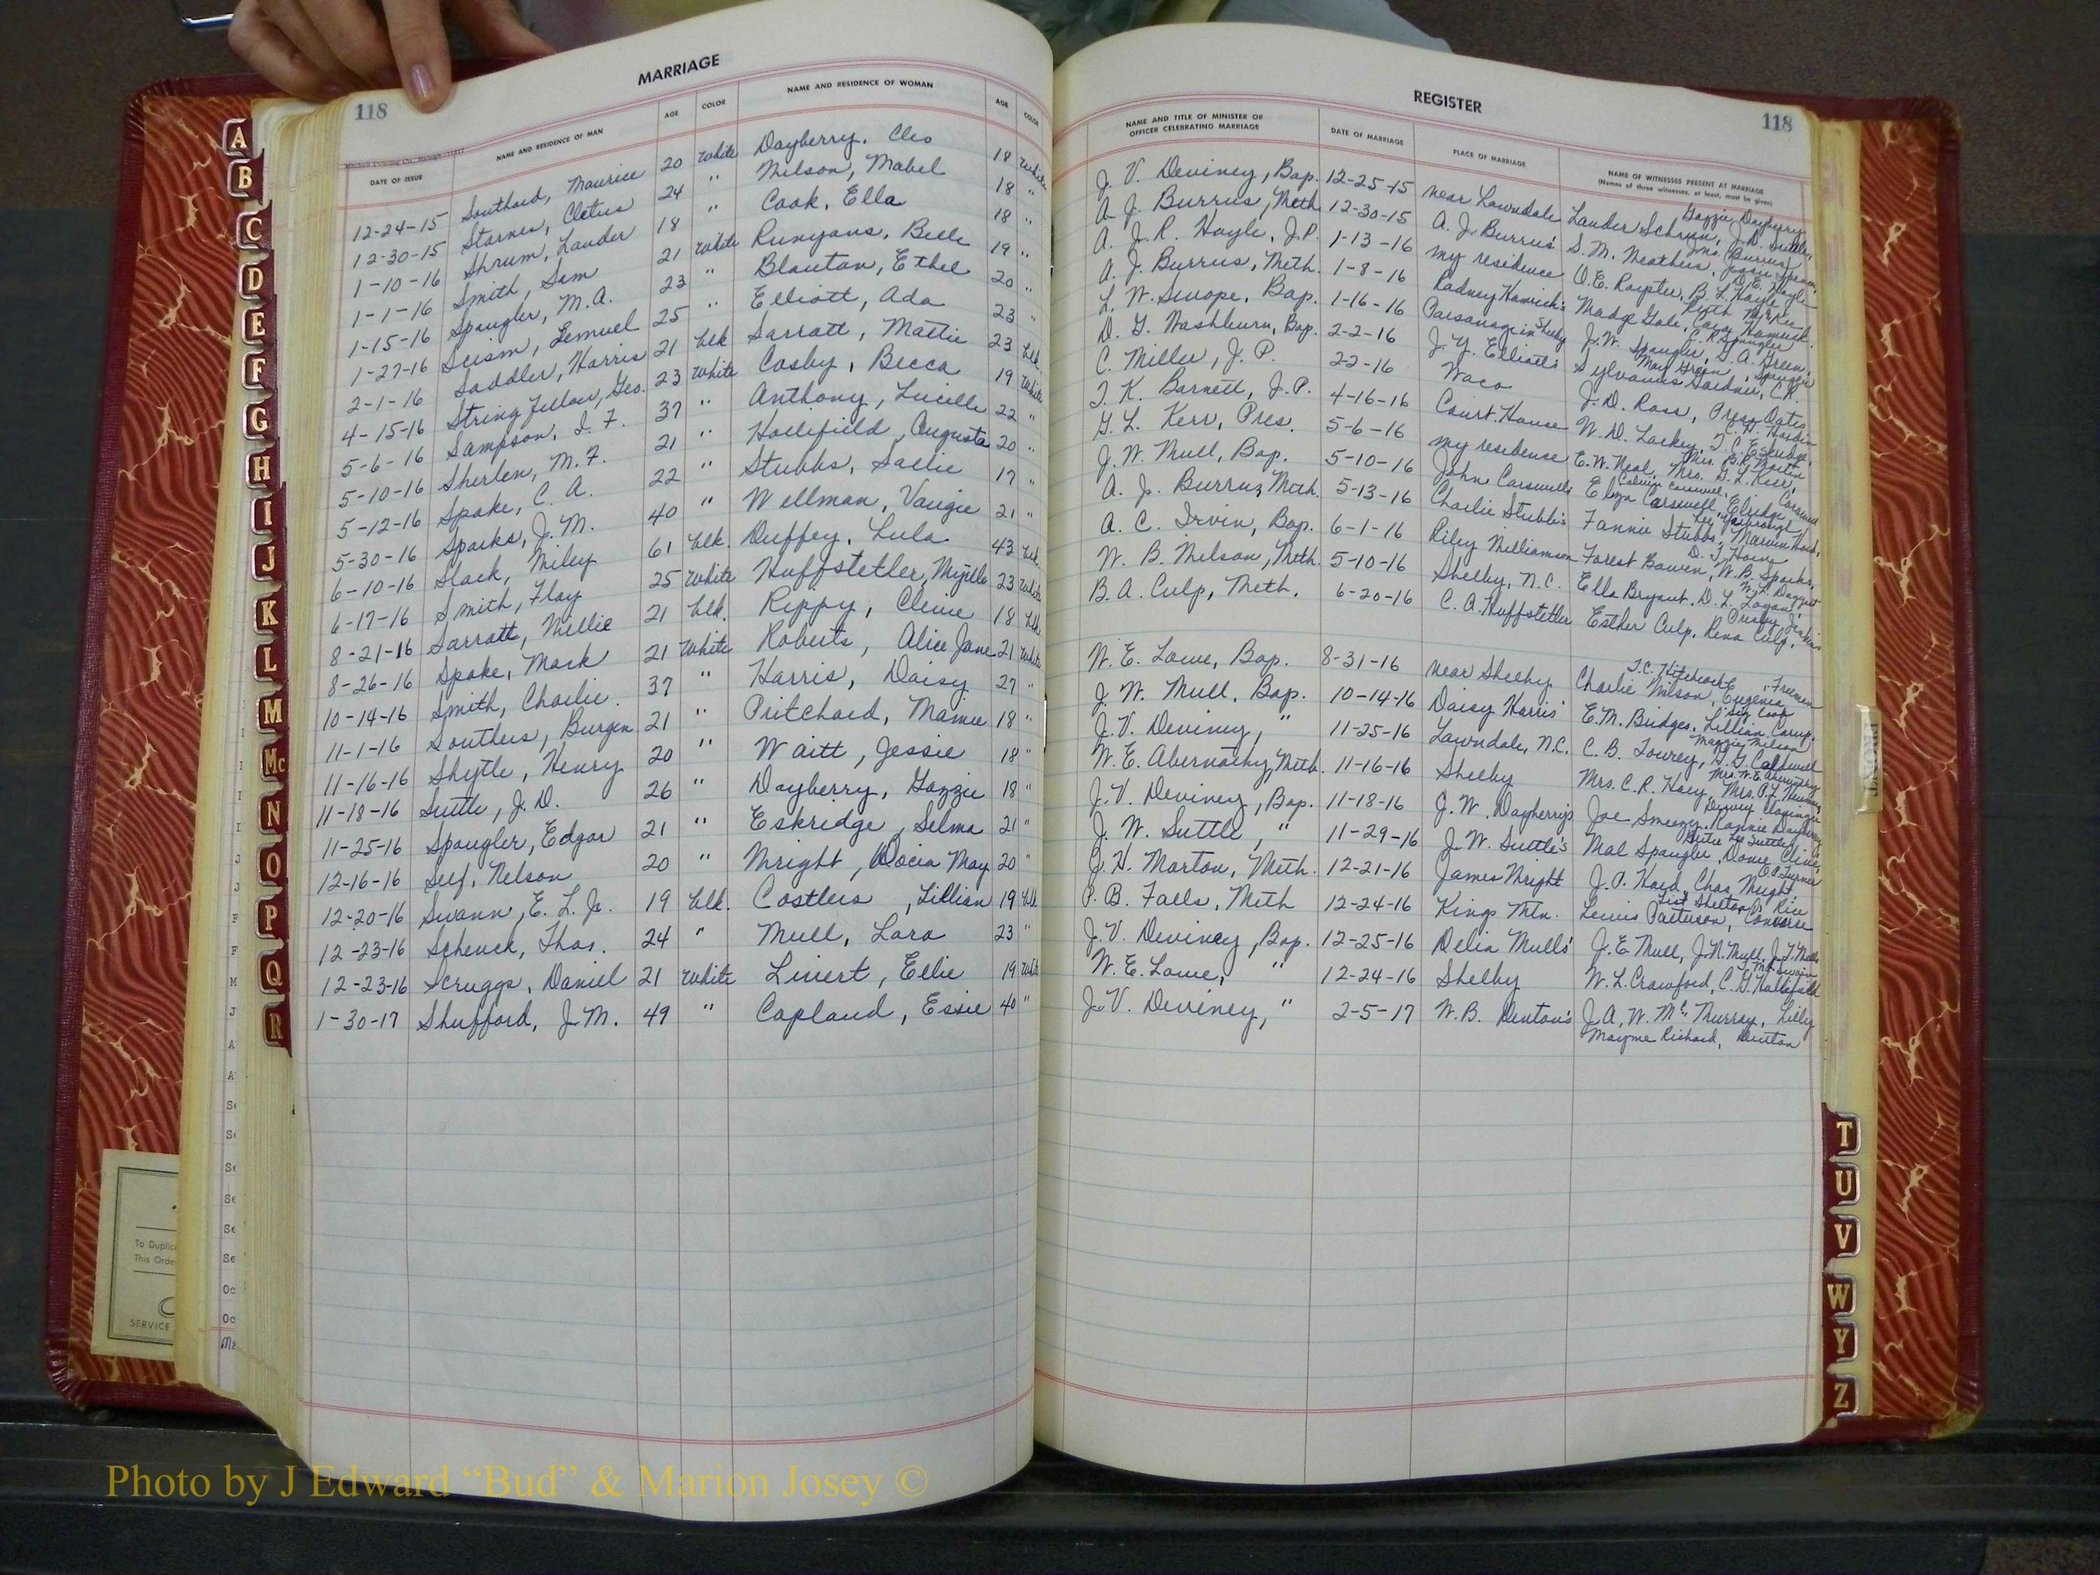 118 MARRIAGE
DATE OF ISSUE NAME AND RESIDENCE OF MAN AGE COLOR NAME AND RESIDENCE OF WOMAN AGE COLOR
12-24-15 Southard, Maurice 20 White Dayberry, Cleo 18 White
12-30-15 Starnes, Cletus 24 " Wilson, Mabel 18 "
1-10-16 Shrum, Lauder 18 " Cook, Ella 18 "
1-1-16 Smith, Sam 21 White Runyans, Belle 19 "
1-15-16 Spangler, M. A. 23 " Blanton, Ethel 20 "
1-27-16 Scism, Lemuel 25 " Elliott, Ada 23 "
2-1-16 Saddler, Harris 21 blk Sarratt, Mattie 23 blk.
4-15-16 Stringfellow, Geo. 23 White Cosby, Becca 19 White
5-6-16 Sampson, I. F. 37 " Anthony, Lucille 22 "
5-10-16 Sherlen, M. F. 21 " Hollifield, Augusta 20 "
5-12-16 Spake, C. A. 22 " Stubbs, Sallie 17 "
5-30-16 Sparks, J. M. 40 " Wellman, Vangie 21 "
6-10-16 Slack, Wiley 61 blk. Duffey, Lula 43 blk.
6-17-16 Smith, Flay 25 White Huffstetler, Myrtle 23 White
8-21-16 Sarratt, Willie 21 blk. Rippy, Clevie 18 blk
8-26-16 Spake, Mark 21 White Roberts, Alice Jane 21 White
10-14-16 Smith, Charlie 37 " Harris, Daisy 27 "
11-1-16 Southers, Burgin 21 " Pritchard, Mamie 18 "
11-16-16 Shytle, Henry 20 " Waitt, Jessie 18 "
11-18-16 Suttle, J. D. 26 " Dayberry, Gazzie 18 "
11-25-16 Spangler, Edgar 21 " Eskridge, Selma 21 "
12-16-16 Self, Nelson 20 " Wright, Docia May 20 "
12-20-16 Swann, E. L. Jr. 19 blk. Costlers, Lillian 19 blk
12-23-16 Schenck, Thos. 24 " Mull, Lara 23 "
12-23-16 Scruggs, Daniel 21 White Linert, Ellie 19 White
1-30-17 Shufford, J. M. 49 " Copland, Essie 40 "
REGISTER 118
NAME AND TITLE OF MINISTER OR OFFICER CELEBRATING MARRIAGE DATE OF MARRIAGE PLACE OF MARRIAGE NAME OF WITNESSES PRESENT AT MARRIAGE
(Names of three witnesses, at least, must be given)
J. V. Deviney, Bap. 12-25-15 near Lawndale Lauder Schrum, Gazzie Dayberry, J. D. Suttle,
A. J. Burrus, Meth. 12-30-15 A. J. Burrus' S. M. Weathers, Jno. Burrus,
A. J. R. Hoyle, J.P. 1-13-16 my residence O. E. Royster, B. L. Hoyle, D. E. Hoyle
A. J. Burrus, Meth. 1-8-16 Radney Hamrick's Madge Gale, Ruth McKee
L. W. Swope, Bap. 1-16-16 Parsonage in Shelby J. W. Spangler, G. A. Green,
D. G. Washburn, Bap. 2-2-16 J. Y. Elliott's Sylvanus Gardner, C. R.
C. Miller, J. P. 22-16 Waco J. D. Ross, Pressy Oates
T. K. Barnett, J.P. 4-16-16 Court House W. D. Lackey, T. C. Eskridge,
G. L. Kerr, Pres. 5-6-16 my residence E. W. Neal, Mrs. G. L. Kerr,
J. W. Mull, Bap. 5-10-16 John Carswell's Eliza Carswell, Calvin Carswell, Elridge Carswell
A. J. Burrus, Meth. 5-13-16 Charlie Stubbs's Fannie Stubbs, Marvin Hord,
A. C. Irvin, Bap. 6-1-16 Riley Williamson Forest Bowen, W. B. Sparks,
W. B. Wilson, Meth. 5-10-16 Shelby, N.C. Ella Bryant, D. L. Logan,
B. A. Culp, Meth. 6-20-16 C. A. Huffstetler Esther Culp, Rena Culp,
W. E. Lowe, Bap. 8-31-16 near Shelby Charlie Wilson, Eugenia Freeman
J. W. Mull, Bap. 10-14-16 Daisy Harris' E. M. Bridges, Lillian Camp,
J. V. Deviney, " 11-25-16 Lawndale, N.C. C. B. Towrey, D. G. Caldwell, Maggie Wilson
W. E. Abernathy, Meth. 11-16-16 Shelby Mrs. C. R. Hoey, Mrs. W. E. Abernathy
J. V. Deviney, Bap. 11-18-16 J. W. Dayberry's Joe Smeezer, Rannie Dayberry
J. W. Suttle, " 11-29-16 J. W. Suttle's Mal Spangler, Dowe Cline,
J. H. Morton, Meth. 12-21-16 James Wright J. P. Hord, Chas. Wright, O. P. Turner
P. B. Falls, Meth 12-24-16 Kings Mtn. Lewis Patterson,
J. V. Deviney, Bap. 12-25-16 Delia Mull's J. E. Mull, J. N. Mull, J. T. Mull
W. E. Lowe, " 12-24-16 Shelby W. L. Crawford, C. G. Hollifield
J. V. Deviney, " 2-5-17 W. B. Denton's J. A. W. McMurray, Lilly
Mayme Richard, Denton
A
B
C
D
E
F
G
H
I
J
K
L
M
Mc
N
O
P
Q
R
T
U
V
W
Y
Z
FRONT
To Duplic
This Orde
SERVICE
Photo by J Edward “Bud” & Marion Josey ©